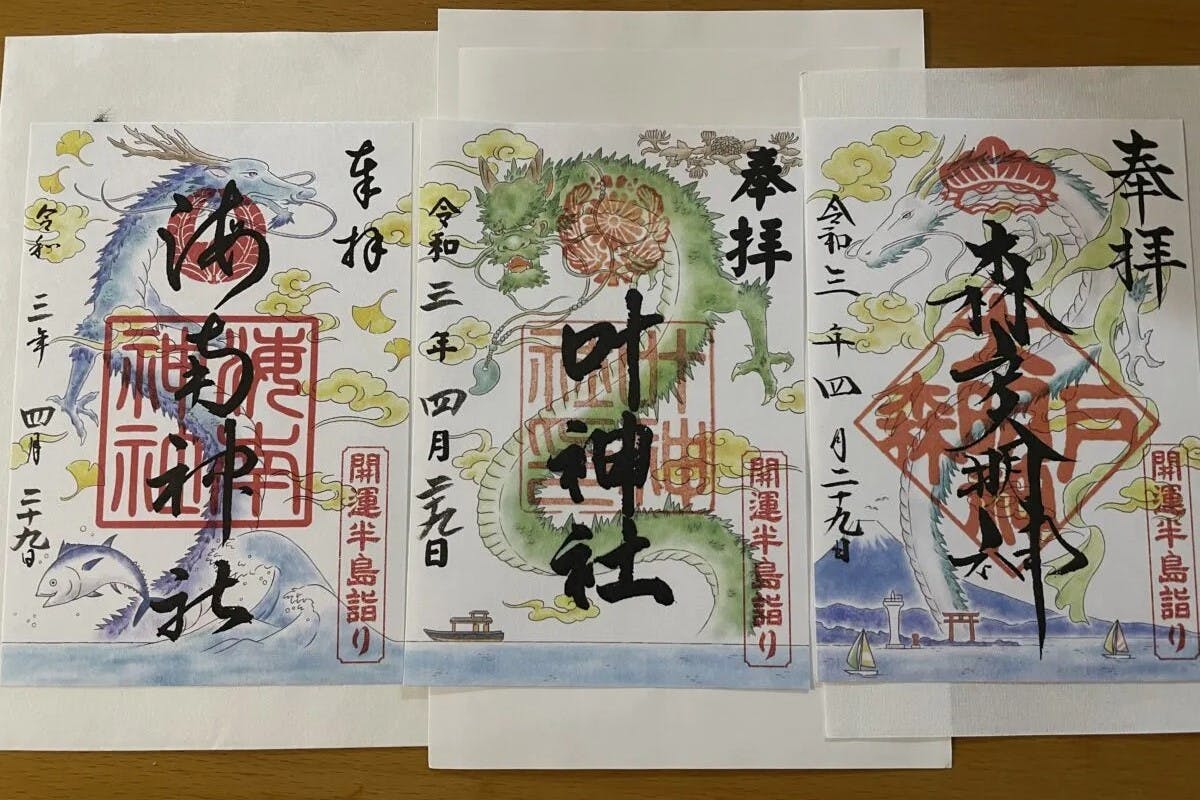 奉拝
海南神社
海南神社
令和三年四月二十九日
開運半島詣り
奉拝
叶神社
令和三年四月二十九日
開運半島詣り
奉拝
森戸大明神
令和三年四月二十九日
開運半島詣り